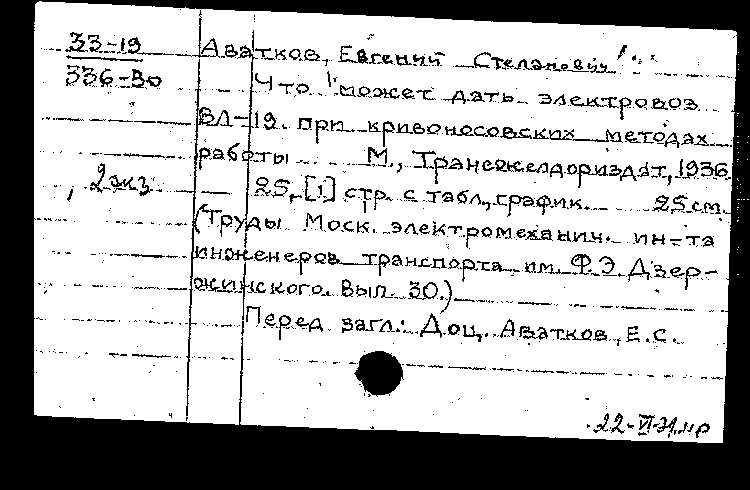 33-19
336-30
2 экз
Аватков, Евгений Степанович
Что может дать электровоз
ВЛ-19 при кривоносовских методах
работы М., Трансжелдориздат, 1936
25, [1] стр. с табл., график. 25 см.
(Труды Моск. электромеханич. ин-та
инженеров транспорта им. Ф.Э. Дзер-
жинского. Вып. 30.)
Перед загл.: Доц. Аватков, Е.С.
22-VI-